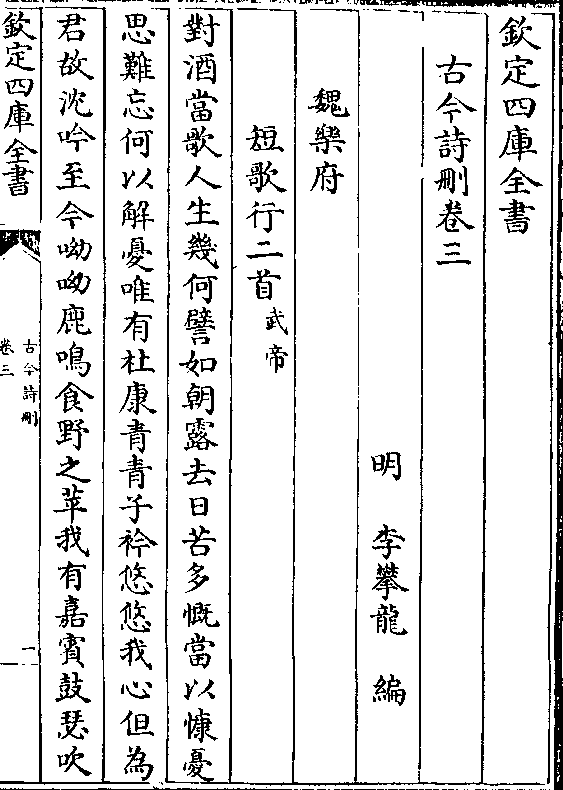 欽定四庫全書
古今詩刪卷三
明　李攀龍　編
魏樂府
短歌行二首武帝
對酒當歌人生幾何譬如朝露去日苦多慨當以慷憂
思難忘何以解憂唯有杜康青青子衿悠悠我心但為
君故沈吟至今呦呦鹿鳴食野之苹我有嘉賓鼓瑟吹
欽定四庫全書
古今詩刪
卷三
一